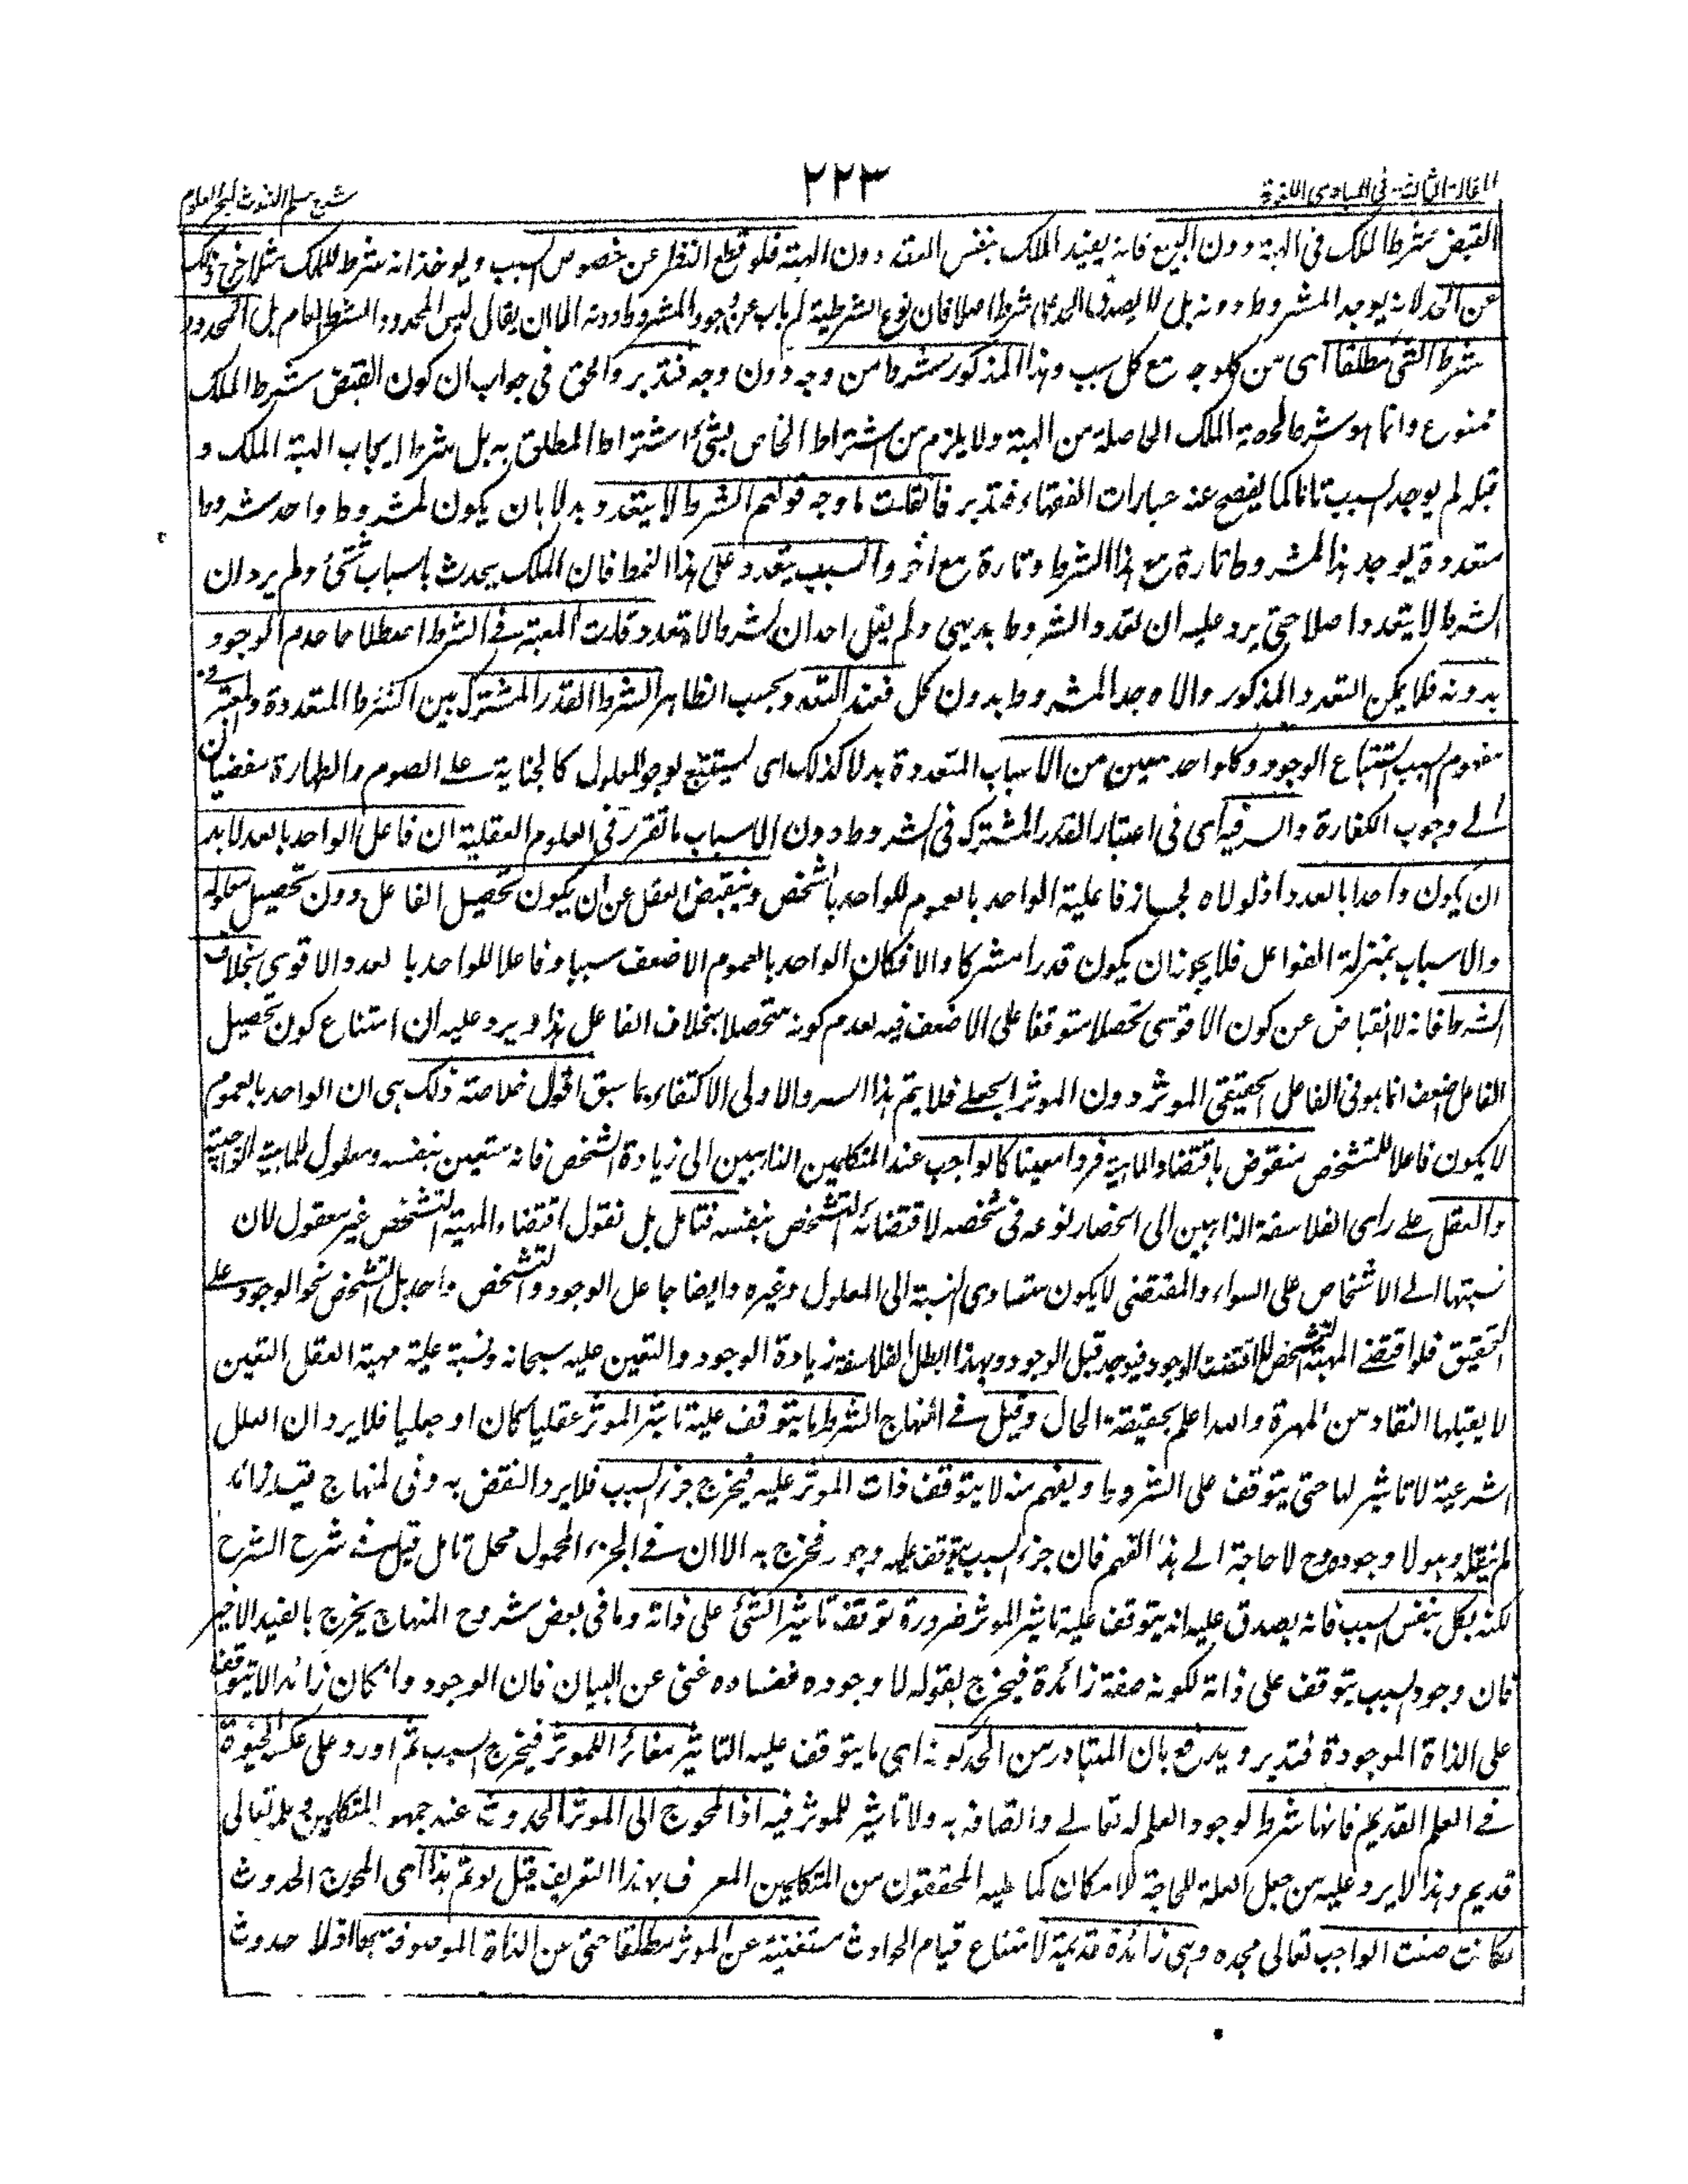 المقالة الثالثة في المبادى اللغوية
٢٢٣
شرح مسلم الثبوت لبحر العلوم
القبض شرط الملك فى الهبة دون البيع فانه يفيد الملك بنفس العقد دون الهبة فلو قطع النظر عن خصوص السبب ويوخذ انه شرط للملك مثلا خرج ذلك
عن الحد لانه يوجد المشروط دونه بل لا يصدق الحد على شرط اصلا فان نوع الشرطية لم ياب عن وجود المشروط دونه الا ان يقال ليس المحدود الشرط العام بل المحدود
شرط الشئ مطلقا اى من كل وجه مع كل سبب وهذا المذكور شرط من وجه دون وجه فتدبر والحق فى جواب ان كون القبض شرط الملك
ممنوع وانما هو شرط لحصة الملك الحاصلة من الهبة ولا يلزم من اشتراط الخاص بشئ اشتراط المطلق به بل شرط ايجاب الهبة الملك و
قبله لم يوجد السبب تاما كما يفصح عنه عبارات الفقهاء فتدبر فان قلت ما وجه قولهم الشرط لا يتعدد بدلا بان يكون لمشروط واحد شروط
متعددة يوجد هذا المشروط تارة مع هذا الشرط وتارة مع اخر والسبب يتعدد على هذا النمط فان الملك يحدث باسباب شتى ولم يرد ان
الشرط لا يتعدد اصلا حتى يرد عليه ان تعدد الشروط بديهى ولم يقل احد ان الشرط لا يتعدد قلت المعتبر فى الشرط اصطلاحا عدم الوجود
بدونه فلا يمكن التعدد المذكور والا وجد المشروط بدون كل فعند التعدد بحسب الظاهر الشرط القدر المشترك بين الشرط المتعددة والمعتبر فى
مفهوم السبب استتباع الوجود وكل واحد معين من الاسباب المتعددة بدلا كذلك اى يستتبع لوجود المعلول كالجناية على الصوم والظهارة مفضيان
الى وجوب الكفارة والسر فيه اى فى اعتبار القدر المشترك فى الشروط دون الاسباب ما تقرر فى العلوم العقلية ان فاعل الواحد بالعدد لا بد
ان يكون واحدا بالعدد اذ لولاه لجاز فاعلية الواحد بالعموم للواحد بالشخص وينقبض العقل عن ان يكون تحصيل الفاعل دون تحصيل معلوله
والاسباب بمنزلة الفواعل فلا يجوز ان يكون قدرا مشتركا والا فكان الواحد بالعموم الاضعف سببا وفاعلا للواحد بالعدد الاقوى بخلاف
الشرط فانه لا انقباض عن كون الاقوى تحصلا متوقفا على الاضعف فيه لعدم كونه متحصلا بخلاف الفاعل هذا ويرد عليه ان امتناع كون تحصيل
الفاعل اضعف انما هو فى الفاعل الحقيقى الموثر دون الموثر الجعلى فلا يتم هذا السر والاولى الاكتفاء بما سبق اقول خلاصة ذلك هى ان الواحد بالعموم
لا يكون فاعلا للتشخص منقوض باقتضاء الماهية فردا معينا كالواجب عند المتكلمين الذاهبين الى زيادة التشخص فانه متعين بنفسه ومعلول للماهية الواجبية
والعقل على راى الفلاسفة الذاهبين الى انحصار نوعه فى شخصه لاقتضائه التشخص بنفسه فتامل بل نقول اقتضاء المهية التشخص غير معقول لان
نسبتها الى الاشخاص على السواء والمقتضى لا يكون متساوى النسبة الى المعلول وغيره وايضا جاعل الوجود والتشخص واحد بل التشخص نحو الوجود على
التحقيق فلو اقتضى المهية التشخص لاقتضت الوجود فيوجد قبل الوجود وبهذا ابطل الفلاسفة زيادة الوجود والتعين عليه سبحانه ونسبة علية مهية العقل التعين
لا يقبلها النقاد من المهرة والله اعلم بحقيقة الحال وقيل فى المنهاج الشرط ما يتوقف عليه تاثير الموثر عقليا كان او جعليا فلا يرد ان العلل
الشرعية لا تاثير لها حتى يتوقف على الشروط ويفهم منه لا يتوقف ذات الموثر عليه فيخرج جزء السبب فلا يرد النقض به وفى المنهاج قيد زائد
لم ينقله وهو لا وجوده وح لا حاجة الى هذا الفهم فان جزء السبب يتوقف عليه وجوده فخرج به الا ان فى الجزء المحمول محل تامل قيل فى شرح الشرح
لكنه بكل بنفس السبب فانه يصدق عليه انه يتوقف عليه تاثير الموثر ضرورة توقف تاثير الشئ على ذاته وما فى بعض شروح المنهاج يخرج بالقيد الاخير
فان وجود السبب يتوقف على ذاته لكونه صفة زائدة فيخرج بقوله لا وجوده ففساده غنى عن البيان فان الوجود وان كان زائدا لا يتوقف
على الذات الموجودة فتدبر ويدفع بان المتبادر من الحد كونه اى ما يتوقف عليه التاثير مغائرا للموثر فيخرج السبب ثم اورد على عكسه الحيوة
فى العلم القديم فانها شرط لوجود العلم له تعالى واتصافه به ولا تاثير للموثر فيه اذ المحوج الى الموثر الحدوث عند جمهور المتكلمين وعلمه تعالى
قديم وهذا لا يرد عليه من جعل العلة للحاجة الامكان كما عليه المحققون من المتكلمين المعرف بهذا التعريف قيل لو تم هذا اى المحوج الحدوث
لكانت صفت الواجب تعالى مجده وهى زائدة قديمة لامتناع قيام الحوادث مستغنية عن الموثر مطلقا حتى من الذات الموصوفة بها اذ لا حدوث